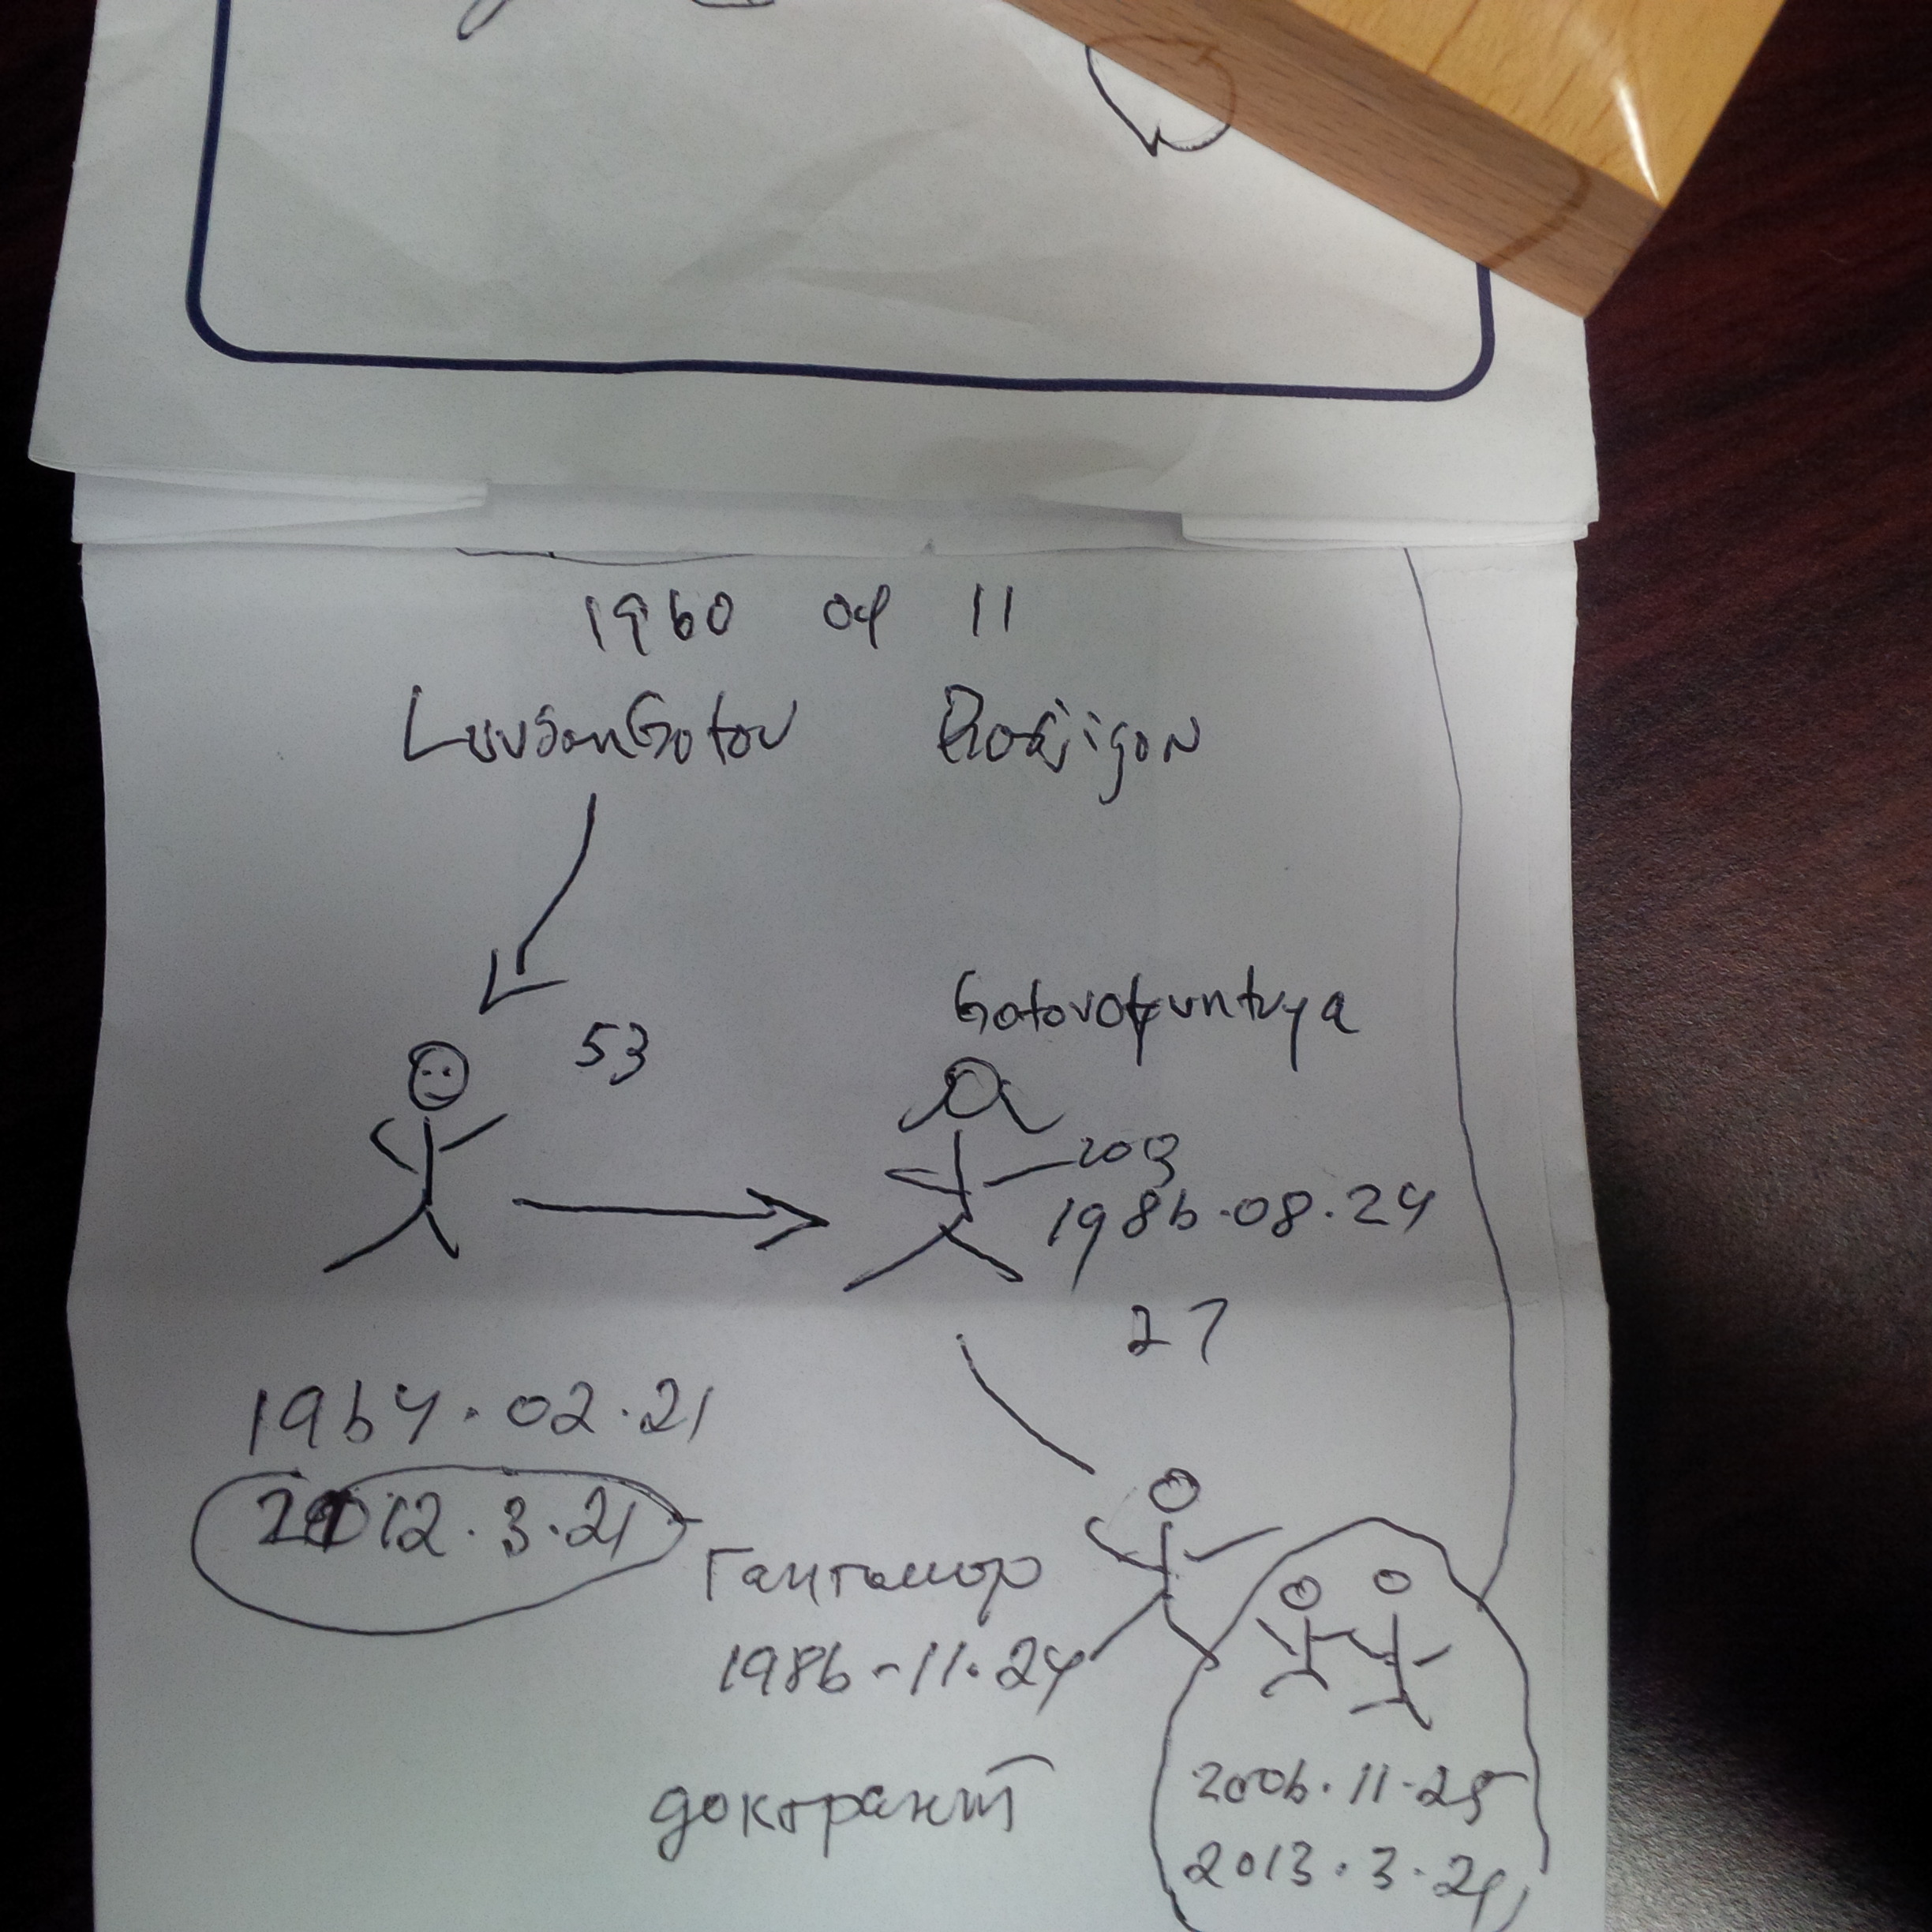 1960 04 11
LuvsanGotov
53
Gotovotguntuya
2013
1986.08.24
27
1964.02.21
2012.3.21
Гантөмөр
1986-11.24
докторант
2006.11.25
2013.3.24